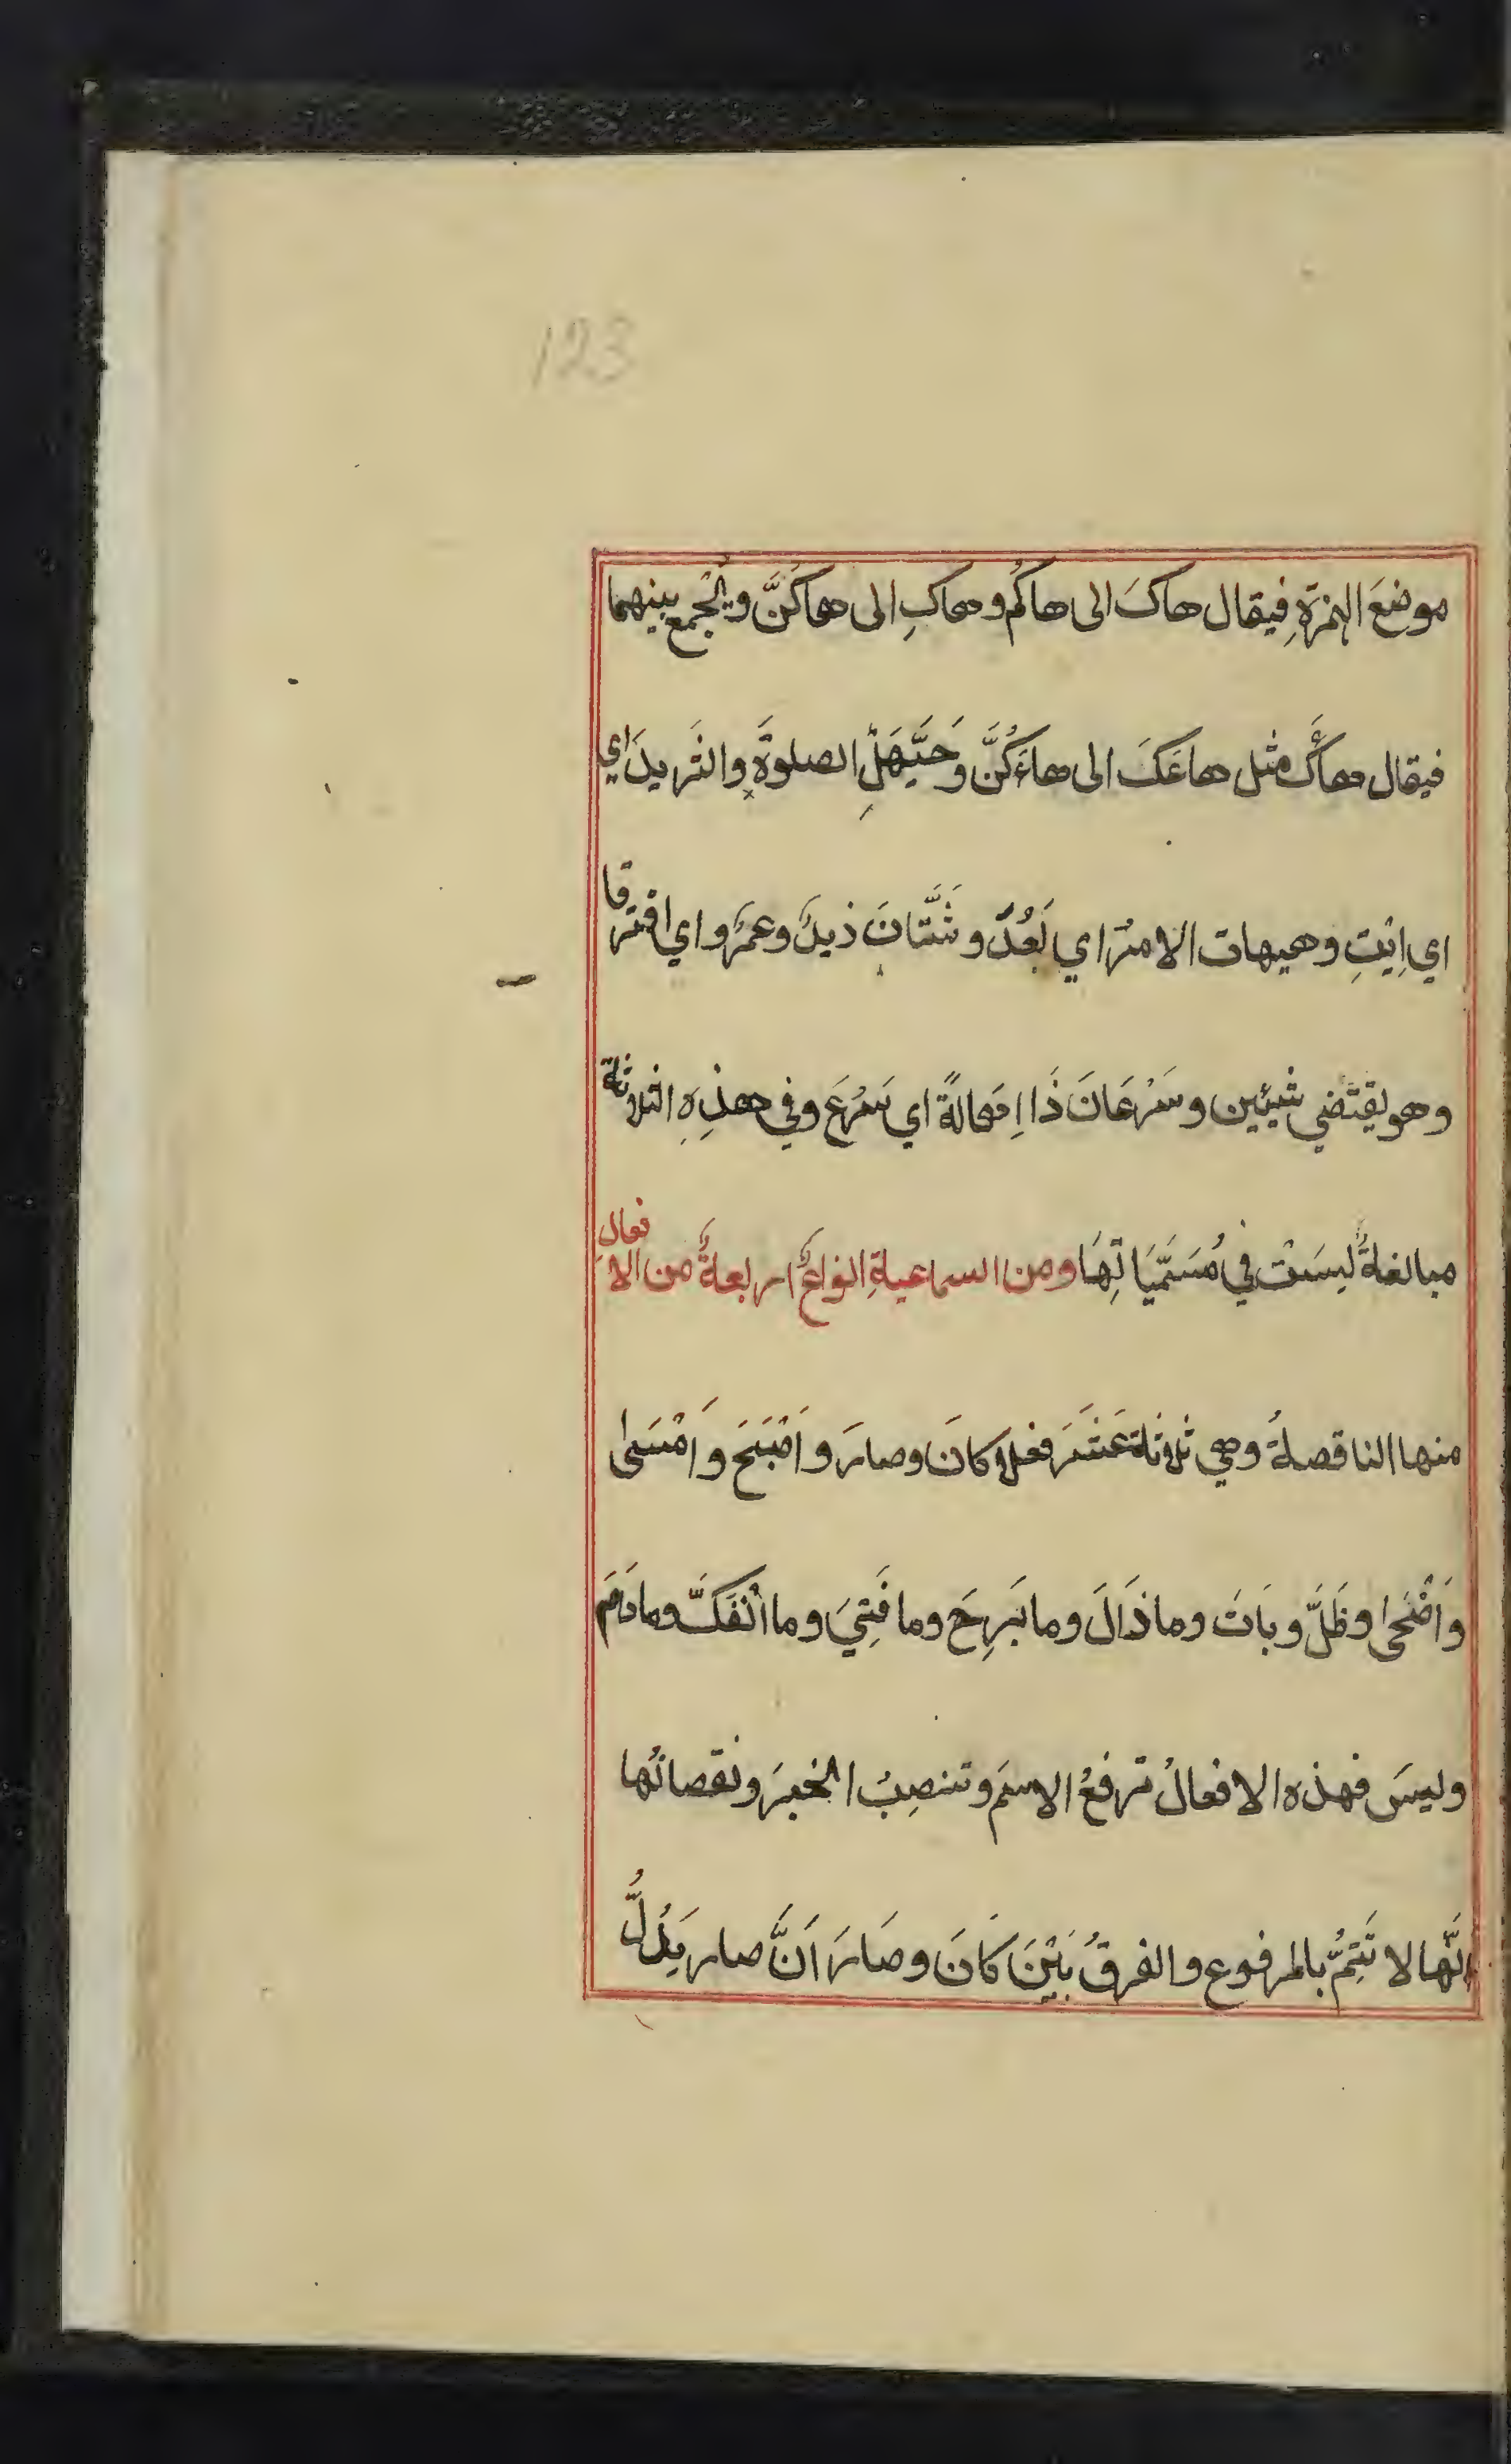 123
موضعَ الهمزةِ فيقال هاكَ الى هاكُم وهاكِ الى هاكُنَّ ويُجْمع بينهما
فيقال هاءَكَ مثل هاعَكَ الى هاءَكُنَّ وَحَيَّهَلِ الصلوةَ والثَريدَ اي
اي اِيْتِ وهيهات الامرُ اي بَعُدَ وشَتَّانَ زيدٌ وعمرٌو اي افترقا
وهو يقتضي شيئين وسَرْعَانَ ذَا اِهَالةً اي سَرُعَ وفي هذِهِ الثلاثة
مبالغةٌ ليسَتْ في مُسَمَّيَاتِهَا ومن السماعيةِ انواعٌ اربعةٌ من الافعال
منها الناقصةُ وهي ثلاثة عَشَرَ فعلا كانَ وصارَ واَصْبَحَ واَمْسَى
وَاَضْحَى وظَلَّ وبَاتَ وما ذَالَ وما بَرِحَ وما فَتِيَ وما انْفَكَّ وما دَامَ
وليسَ فهذه الافعالُ ترفعُ الاسمَ وتنصِبُ الخبرَ ونقصانُها
انَّها لا تَتِمُّ بالمرفوع والفرقُ بَيْنَ كَانَ وصَارَ اَنَّ صار يَدُلُّ